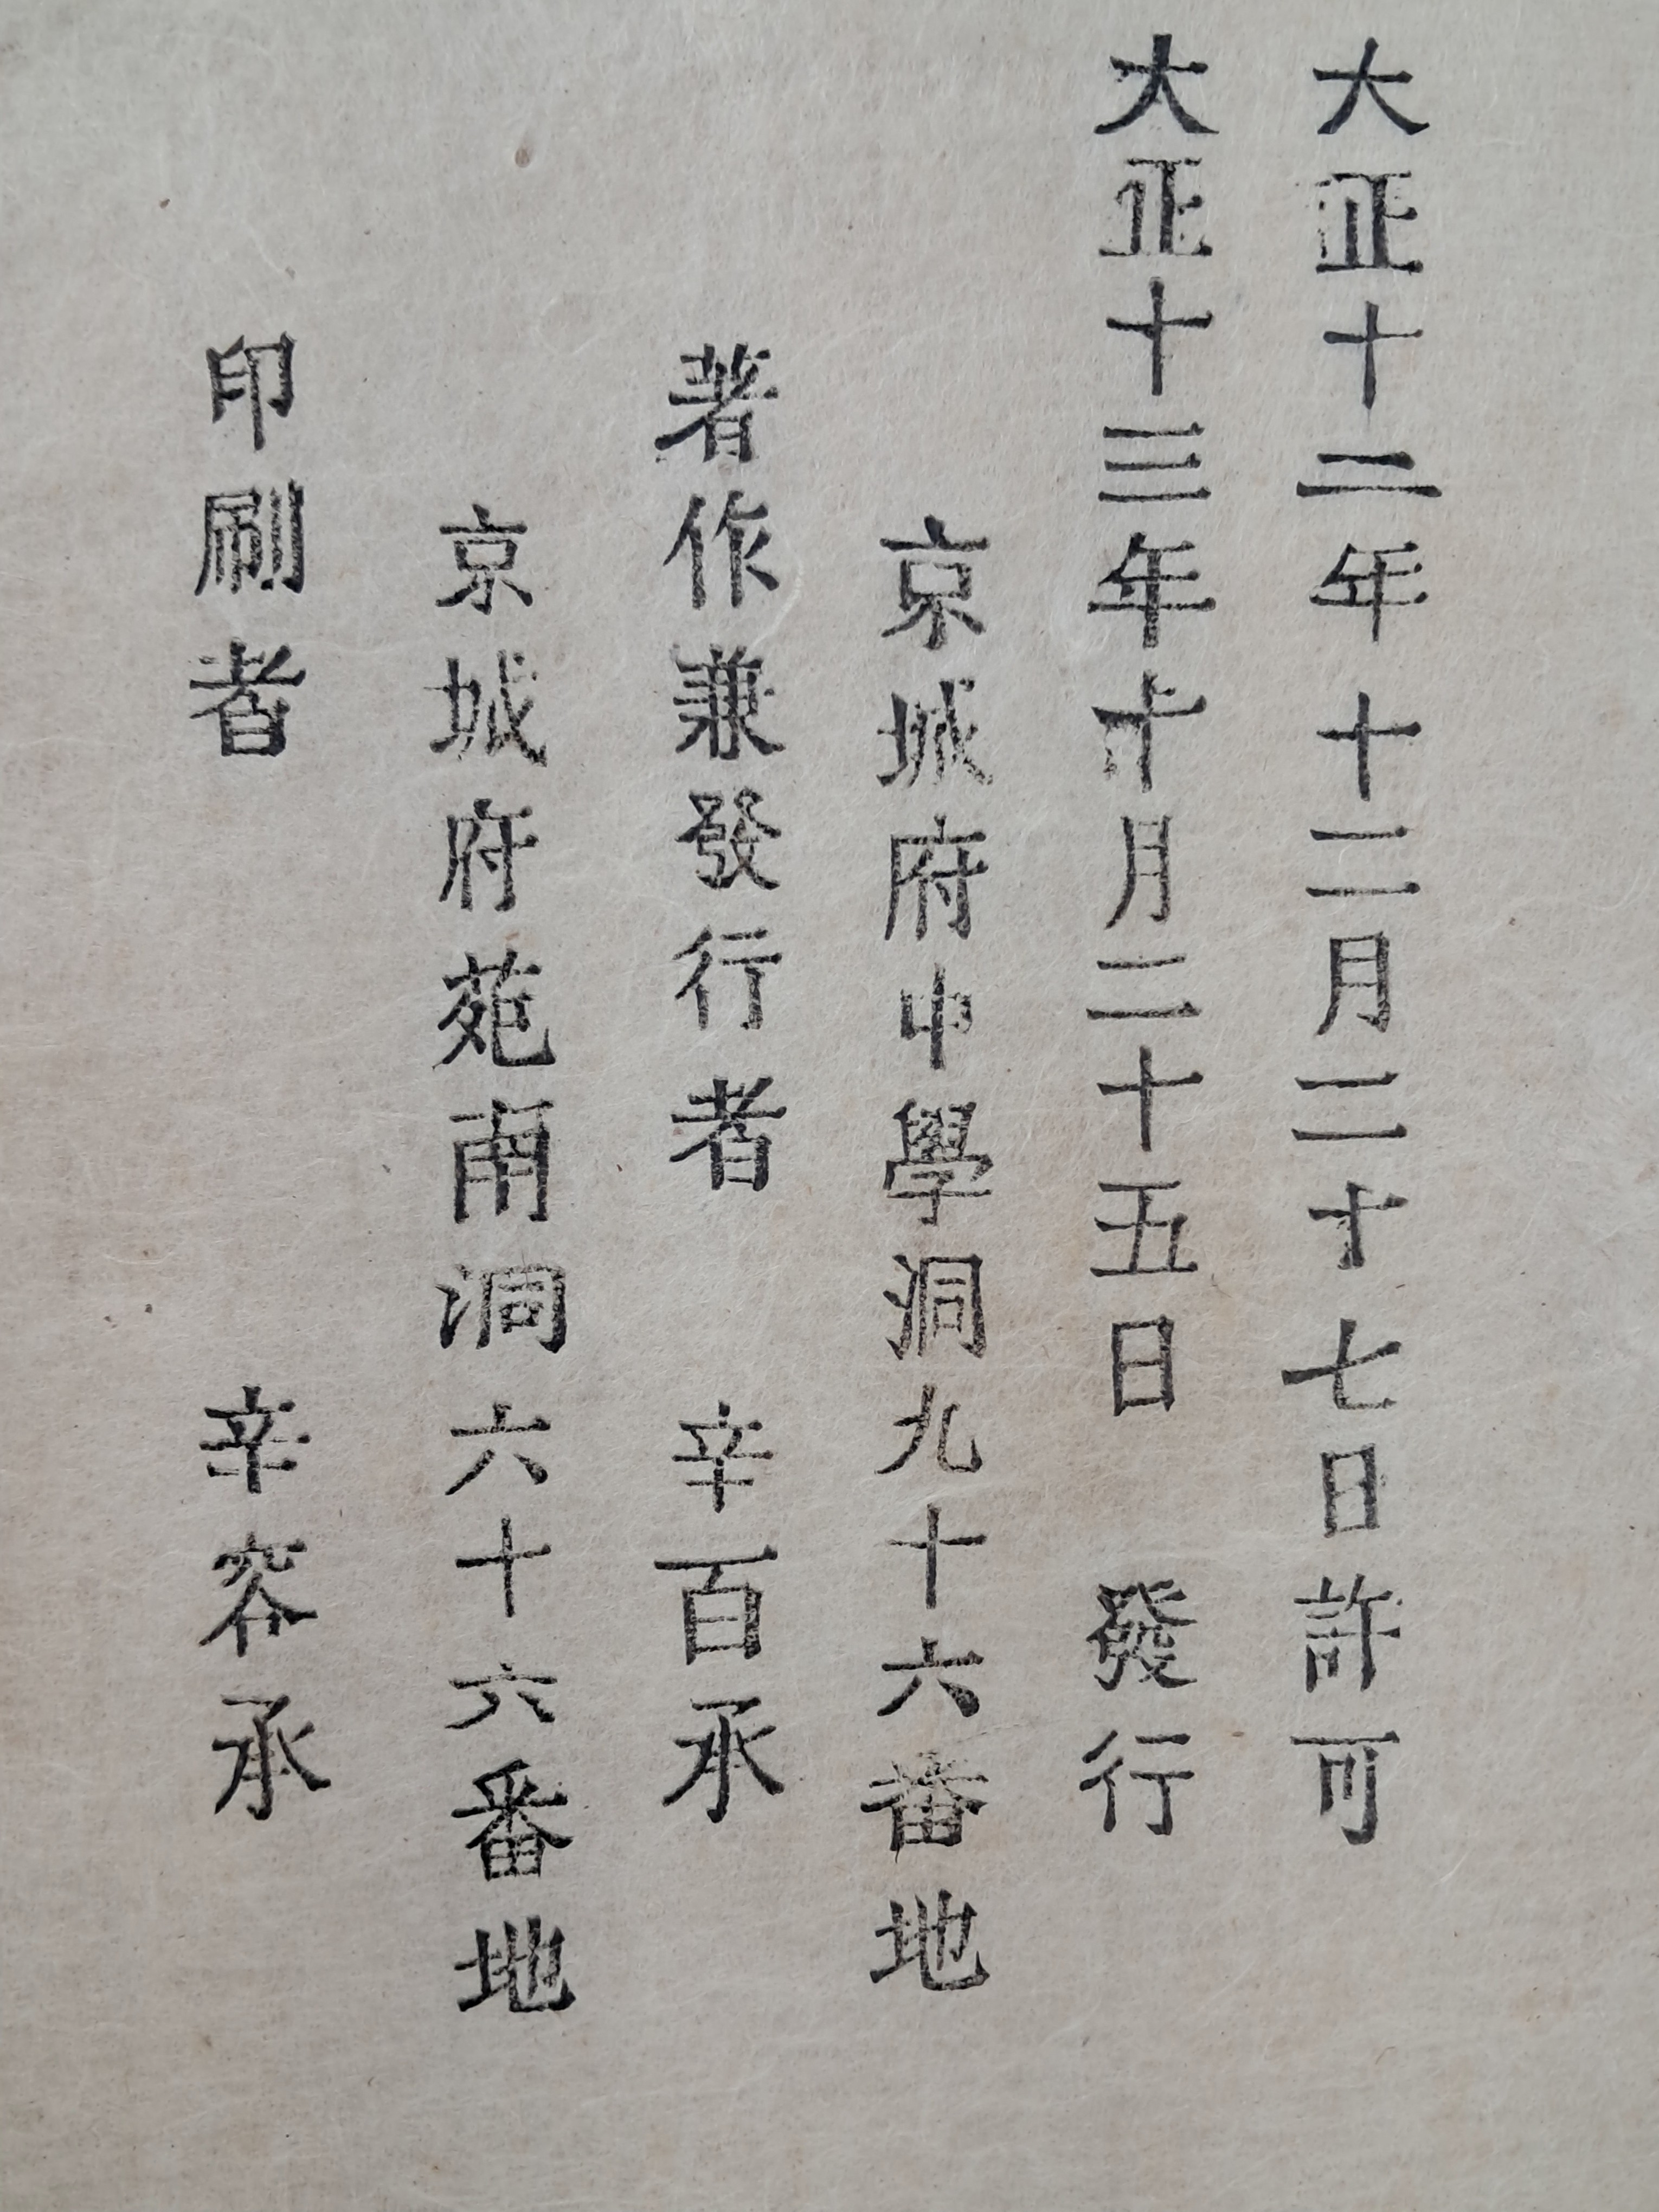 大正十二年十二月二十七日許可
大正十三年十月二十五日 發行
京城府中學洞九十六番地
著作兼發行者 辛百承
京城府苑南洞六十六番地
印刷者 辛容承